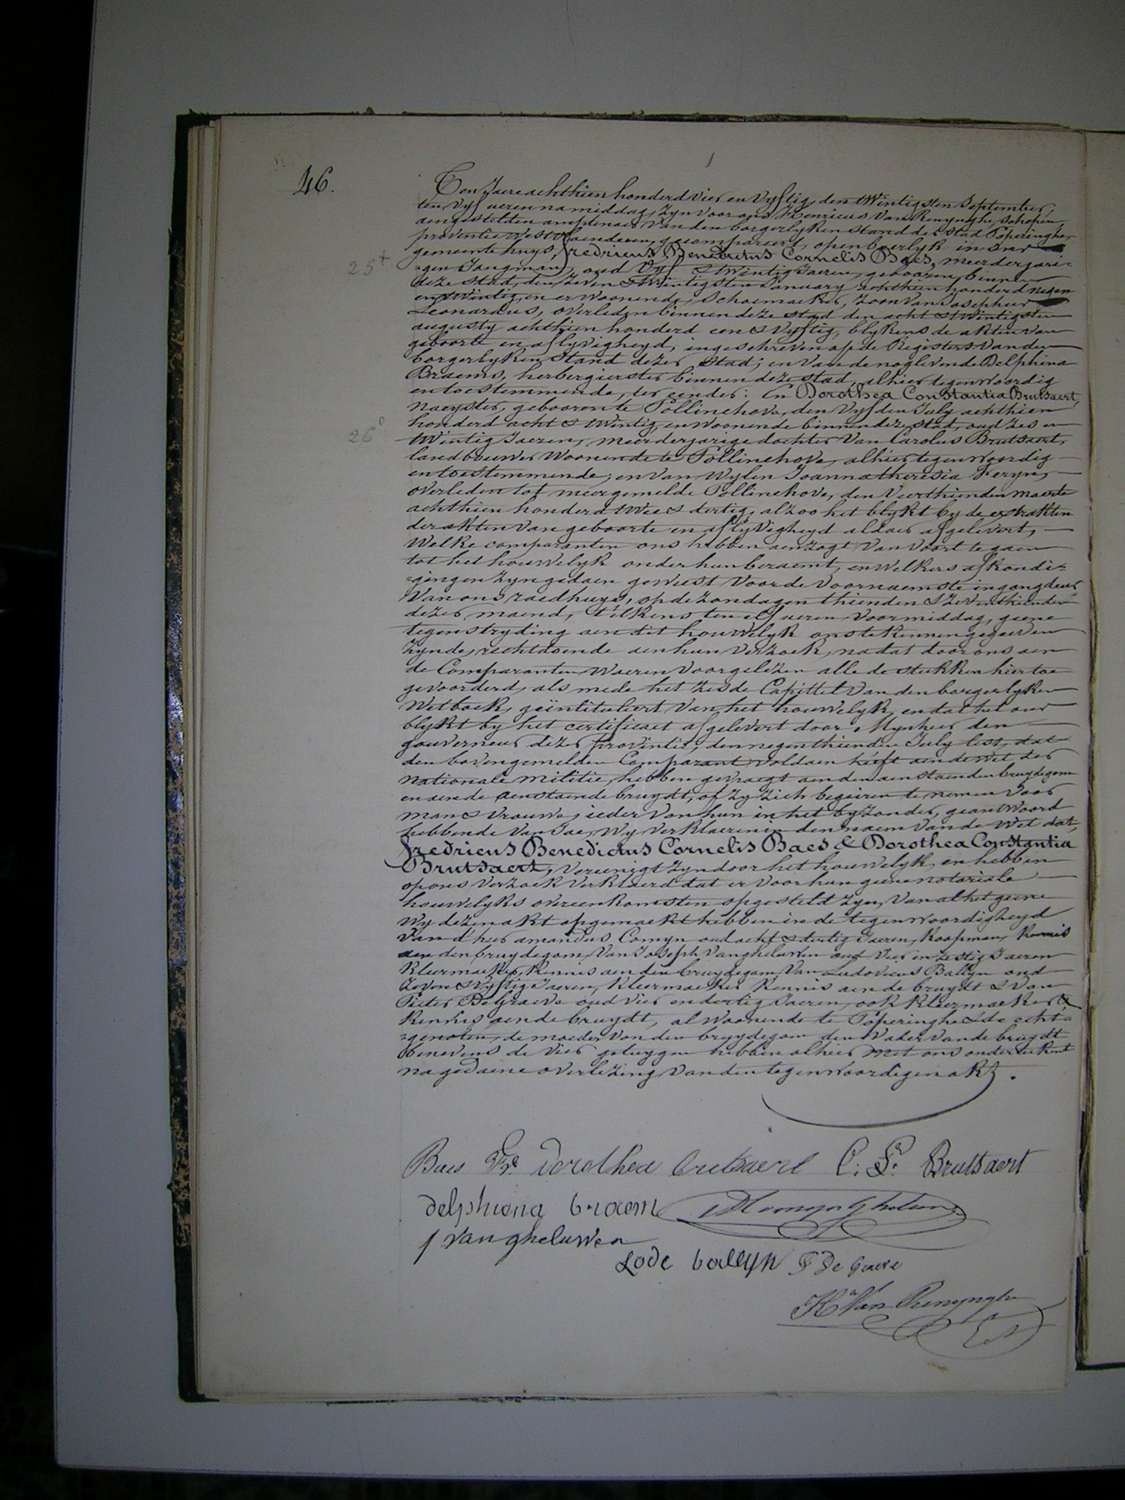 46.
Ten Jaere achthien honderd vier en vyftig, den twintigsten September,
ten vyf ueren namiddag, zyn voor ons Henricus Van Renynghe, schepen,
aengestelden amptenaer van den borgerlyken stand der stad Poperinghe,
provintie Westvlaenderen, gecompareert, openbaerlyk in ons
gemeente huys, fredricus Benedictus Cornelis Baes, meerderjari-
25+
-gen Jongman, oud vyf & twintig Jaeren, geboren binnen
deze stad, den zeven & twintigsten January achthien honderd negen
en twintig, en er woonende, schoemaker, zoon van Josephus
Leonardus, overleden binnen deze stad den acht & twintigsten
augusty achthien honderd een & vyftig, blykens de akten van
geboorte en aflyvigheyd, ingeschreven op de Registers van den
borgerlyken stand dezer stad; en van de nog levende Delphina
Braems, herbergierster binnen deze stad, alhier tegenwoordig
en toestemmende, ter eender. En Dorothea Constantia Brutsaert,
Naeyster, geboren te Pollinchove, den vyfden July achthien
honderd acht & twintig, en woonende binnen deze stad, oud zes en
26°
twintig Jaeren, meerderjarige dochter van Carolus Brutsaert,
landbouwer woonende te Pollinchove, alhier tegenwoordig
en toestemmende, en van wylen Joanna theresia Feryn,
overleden tot meergemelde Pollinchove, den veerthienden maerte
achthien honderd twee & dertig, alzoo het blykt by de extrakten
der akten van geboorte en aflyvigheyd aldaer afgelevert,
Welke comparanten ons hebben aenzogt van voort te gaen
tot het houwelyk onder hun beraemt, en welkers afkondi-
-gingen zyn gedaen geweest voor de voornaemste ingangdeur
van ons raedhuys, op de zondagen thienden & zeventhienden
dezer maend, telkens ten elf ueren voormiddag, geene
tegenstryding aen dit houwelyk ons te kennen gegeven
zynde, rechtdoende aen hun verzoek, na dat door ons aen
de Comparanten waeren voorgelezen alle de stukken hier toe
gevoorderd, als mede het zesde Capittel van den borgerlyken
Wetboek, geïntituleert van het houwelyk, en dat het over
blykt by het certificaet afgelevert door Mynheer den
gouverneur dezer provintie, den negenthienden July lest, dat
den bovengemelden Comparant voldaen heeft aen de wet der
nationale militie, hebben gevraegt aen den aenstaenden bruydegom
en aen de aenstaende bruydt, of zy zich begeiren te nemen voor
man & vrouw; ieder van hun in het byzonder, geantwoord
hebbende van Jae, Wy verklaeren in den naem van de wet dat,
fredricus Benedictus Cornelis Baes & Dorothea Constantia
Brutsaert, vereenigt zyn door het houwelyk, en hebben
op ons verzoek verklaerd dat er voor hun geene notariale
houwelyks overeenkomsten opgesteld zyn, van al het geene
Wy deze akt opgemaekt hebben in de tegenwoordigheyd
van d'heer amandus Comyn oud acht & dertig Jaeren, koopman, kennis
aen den bruydegom, van Joseph Vangheluwen oud vier en zestig Jaeren
kleermaeker, kennis aen den bruydegom, van Ludovicus Ballyn oud
zeven & vyftig Jaeren, kleermaeker kennis aen de bruydt & van
Pieter De Graeve oud vier en dertig Jaeren, ook kleermaeker &
kennis aen de bruydt, al woonende te Poperinghe & de echt-
-genoten, de moeder van den bruydegom den vader van de bruydt
benevens de vier getuygen hebben alhier met ons onderteekent
na gedaene overlezing van den tegenwoordigen akt.
Baes Fr. dorothea brutsaert C. L. Brutsaert
delphiena braem
j vangheluwen
Lode ballyn P De Graeve
H. Van Renynghe